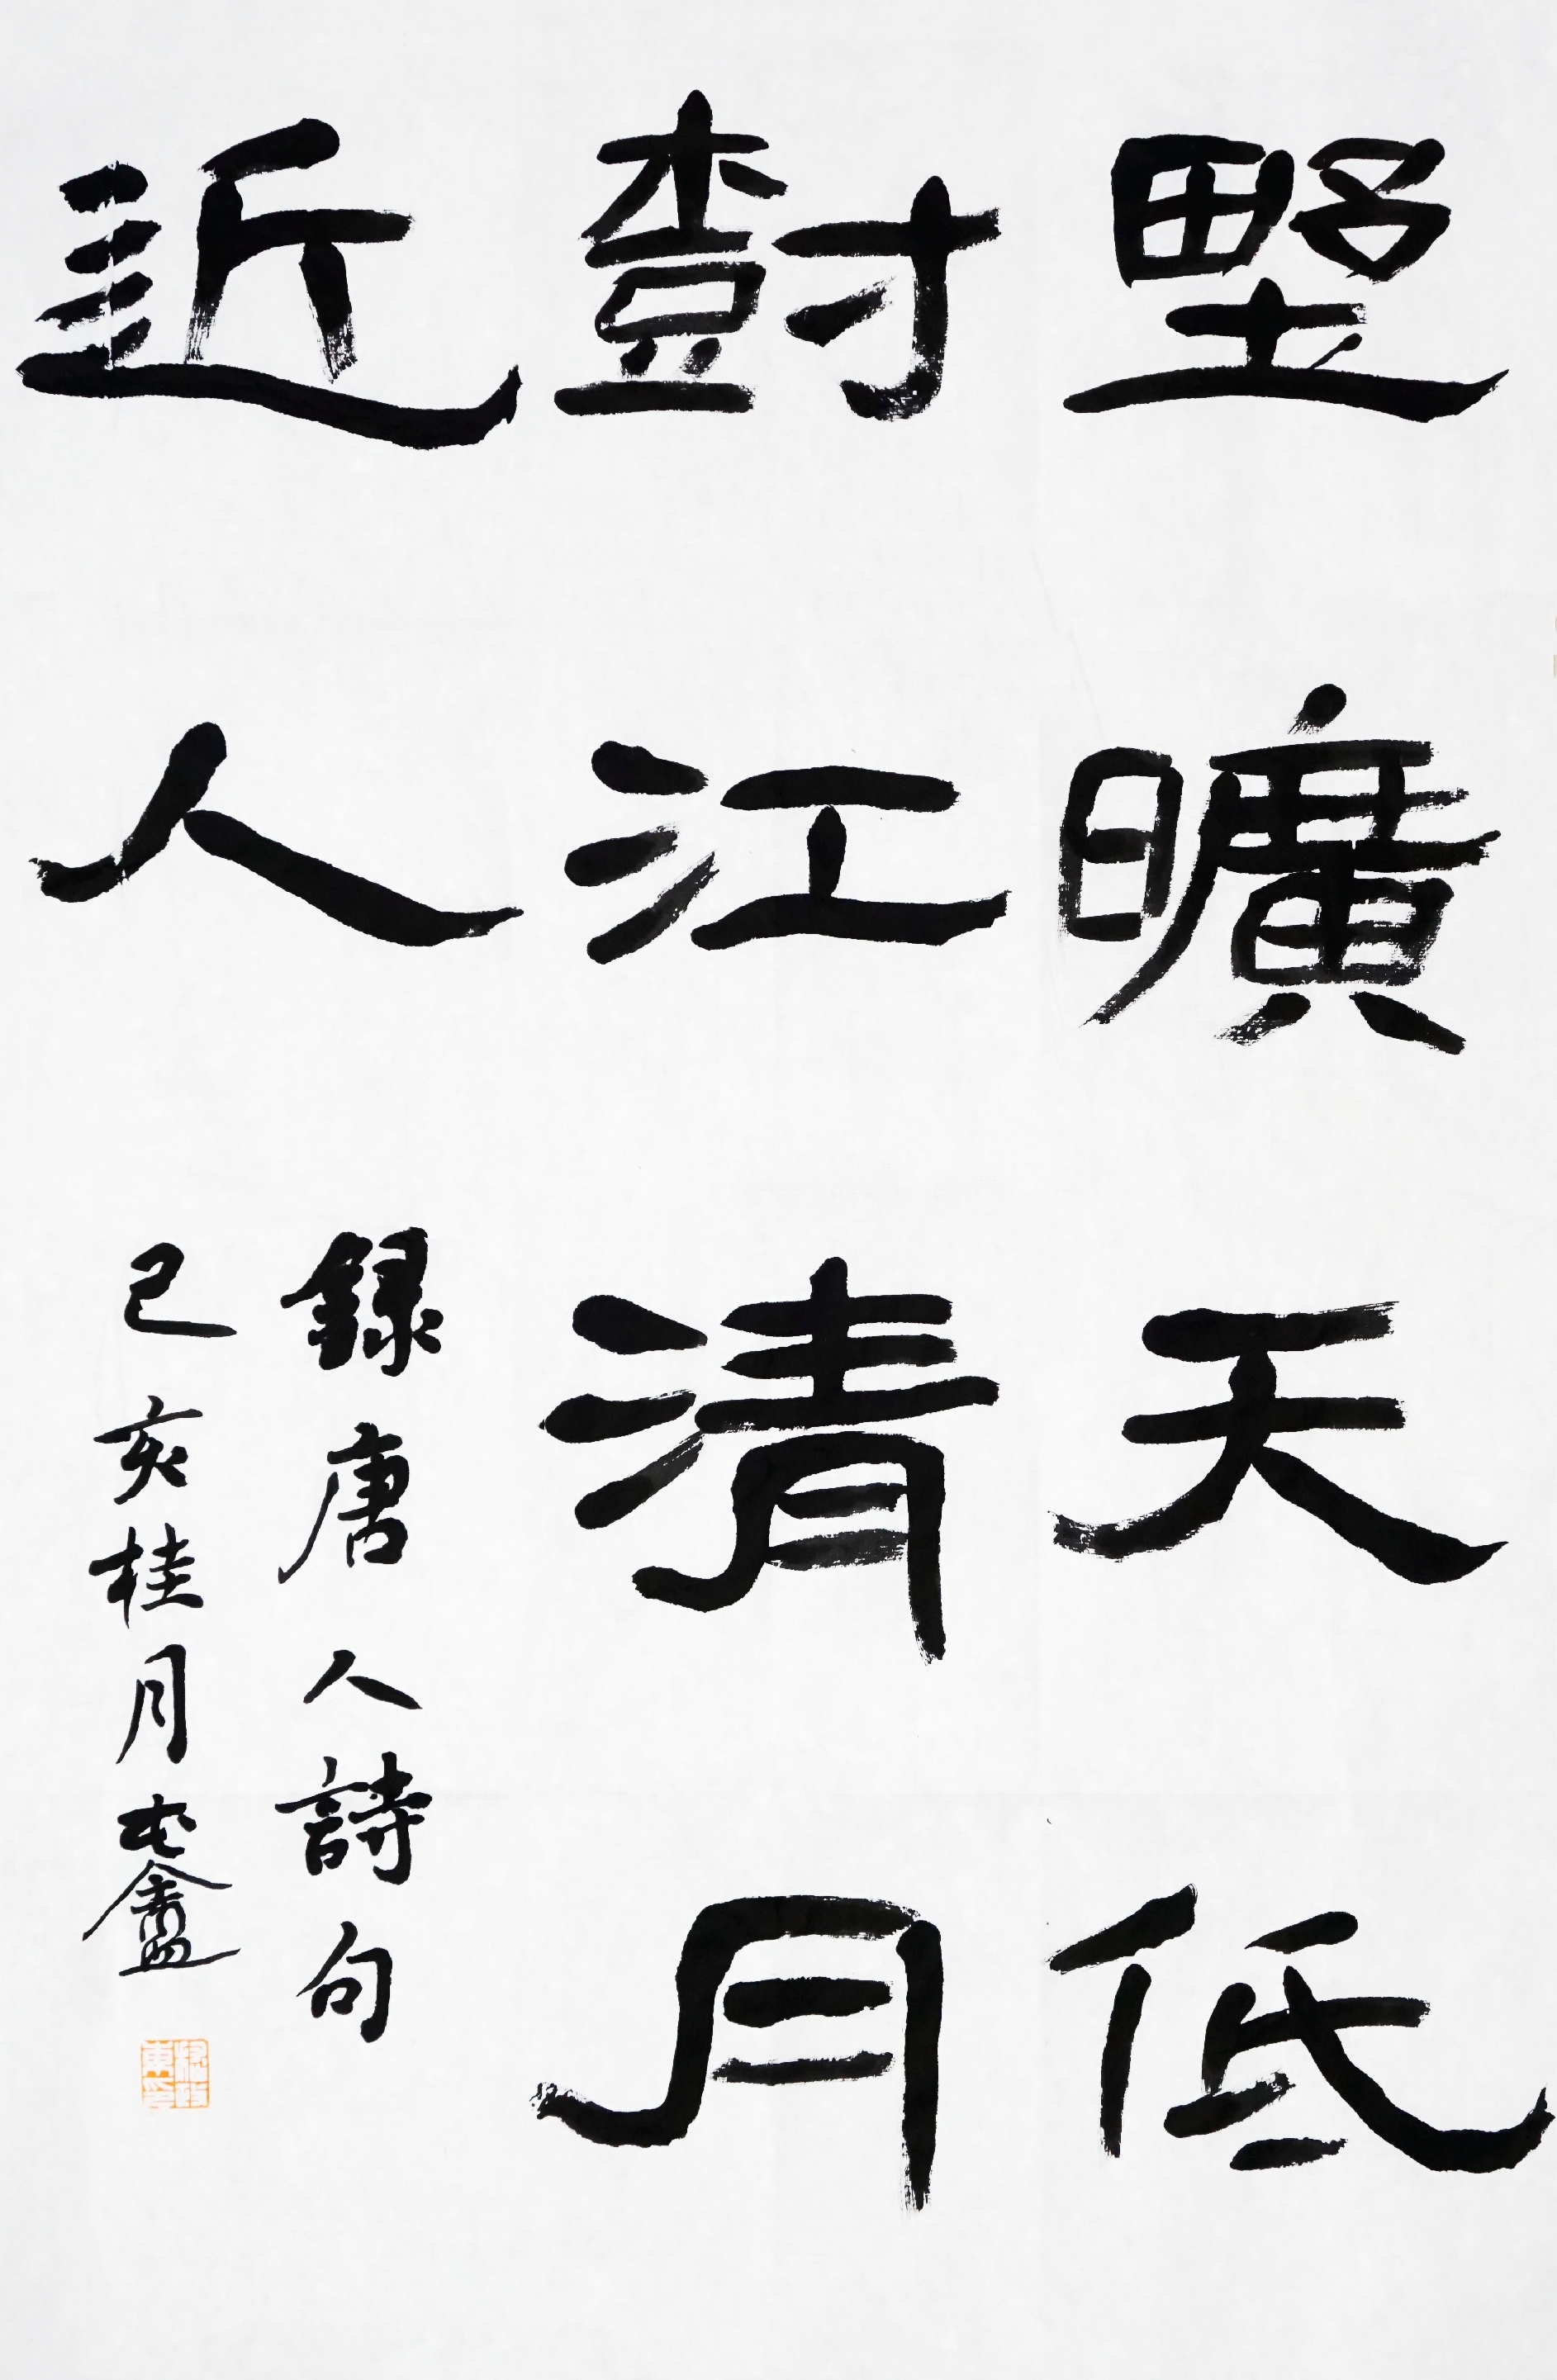 野曠天低
尌江清月
近人
録唐人詩句
己亥桂月